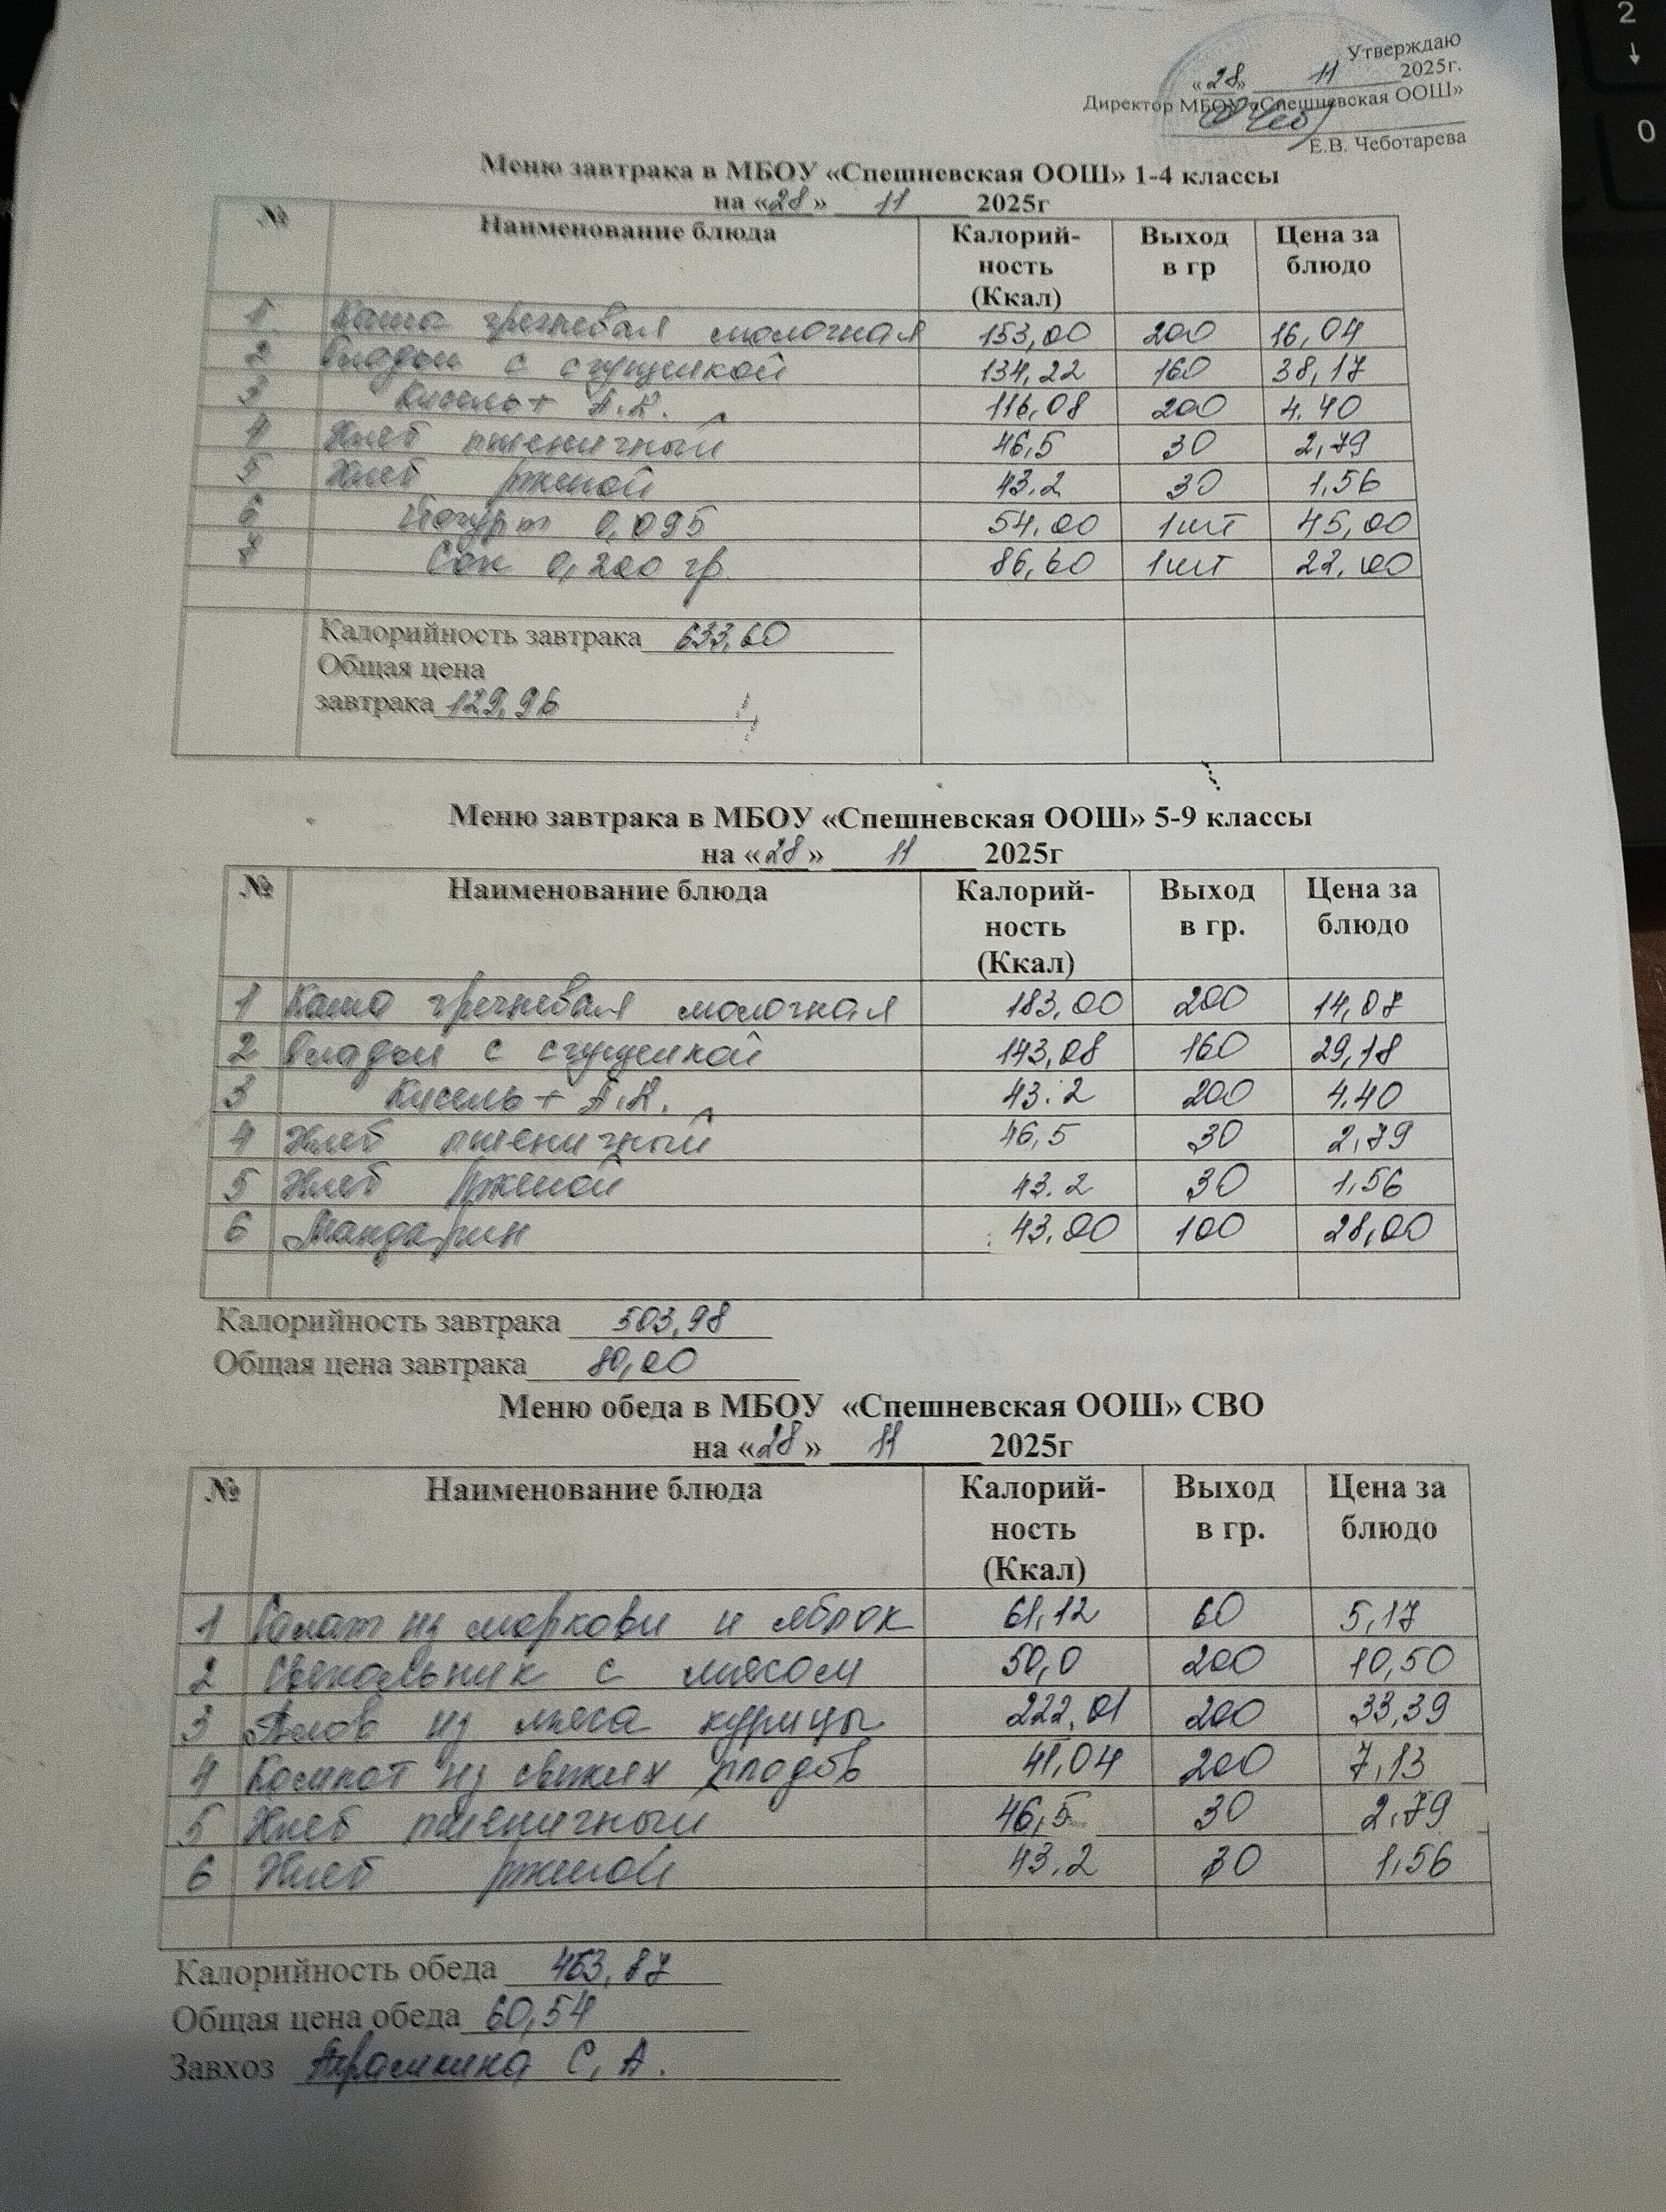 Утверждаю
«28» 11 2025г.
Директор МБОУ «Спешневская ООШ»
Е.В. Чеботарева
Меню завтрака в МБОУ «Спешневская ООШ» 1-4 классы
на «28» 11 2025г
№ Наименование блюда Калорий-ность (Ккал) Выход в гр Цена за блюдо
1 Каша гречневая молочная 153,00 200 16,04
2 Оладьи с сгущенкой 134,22 160 38,17
3 Кисель + А.К. 116,08 200 4.40
4 Хлеб пшеничный 46,5 30 2,79
5 Хлеб ржаной 43.2 30 1.56
6 Йогурт 0,095 54.00 1шт 45,00
7 Сок 0,200 гр. 86,60 1шт 22.00
Калорийность завтрака 633,60
Общая цена
завтрака 129,96
Меню завтрака в МБОУ «Спешневская ООШ» 5-9 классы
на «28» 11 2025г
№ Наименование блюда Калорий-ность (Ккал) Выход в гр. Цена за блюдо
1 Каша гречневая молочная 183,00 200 14,07
2 Оладьи с сгущенкой 143,08 160 29,18
3 Кисель + А.К. 43.2 200 4.40
4 Хлеб пшеничный 46,5 30 2,79
5 Хлеб ржаной 43.2 30 1,56
6 Мандарин 43,00 100 28,00
Калорийность завтрака 503,98
Общая цена завтрака 80,00
Меню обеда в МБОУ «Спешневская ООШ» СВО
на «28» 11 2025г
№ Наименование блюда Калорий-ность (Ккал) Выход в гр. Цена за блюдо
1 Салат из моркови и яблок 61,12 60 5,17
2 Свекольник с мясом 50,0 200 10,50
3 Плов из мяса курицы 222,01 200 33,39
4 Компот из свежих плодов 41,04 200 7,13
5 Хлеб пшеничный 46,5 30 2,79
6 Хлеб ржаной 43.2 30 1,56
Калорийность обеда 463,87
Общая цена обеда 60,54
Завхоз С. А.
2
0